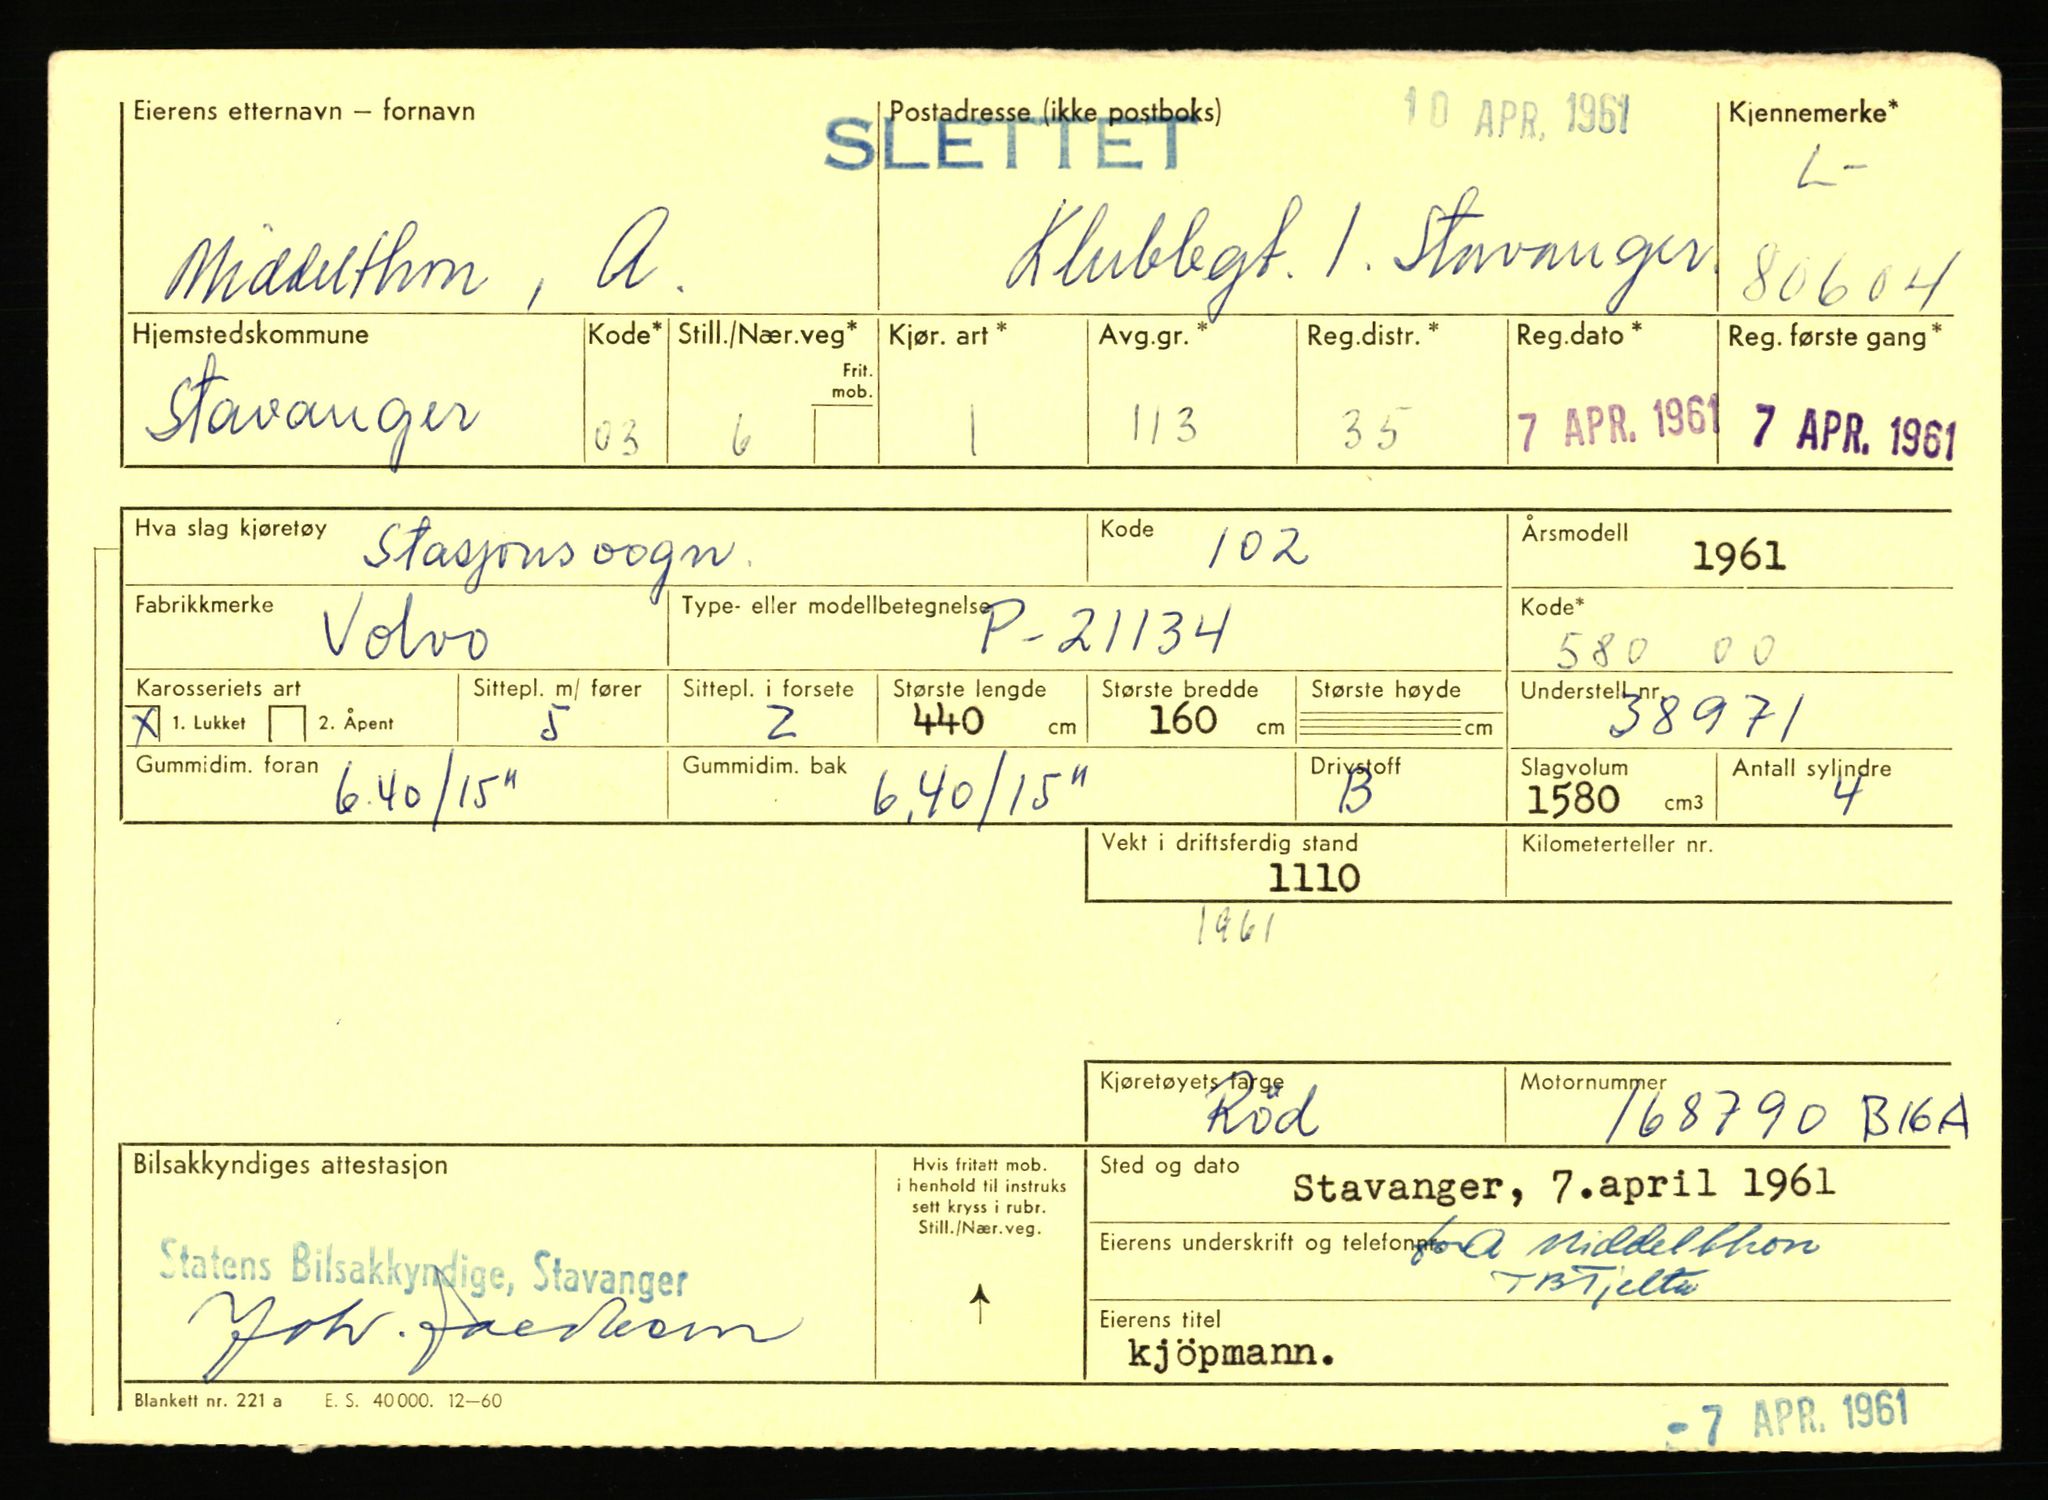 Eierens etternavn – fornavn
Postadresse (ikke postboks)
10 APR. 1961
Kjennemerke*
SLETTET
L-
Middelthon, A.
Klubbgt. 1. Stavanger.
80604
Hjemstedskommune
Kode*
Still./Nær.veg*
Kjør. art *
Avg.gr. *
Reg.distr. *
Reg.dato *
Reg. første gang *
Frit. mob.
Stavanger
03
6
1
113
35
7 APR. 1961
7 APR. 1961
Hva slag kjøretøy
Stasjonsvogn.
Kode
102
Årsmodell
1961
Fabrikkmerke
Volvo
Type- eller modellbetegnelse
P-21134
Kode*
580 00
Karosseriets art
X 1. Lukket
2. Åpent
Sittepl. m/ fører
5
Sittepl. i forsete
2
Største lengde
440 cm
Største bredde
160 cm
Største høyde
cm
Understell nr.
38971
Gummidim. foran
6.40/15"
Gummidim. bak
6.40/15"
Drivstoff
B
Slagvolum
1580 cm3
Antall sylindre
4
Vekt i driftsferdig stand
1110
Kilometerteller nr.
1961
Kjøretøyets farge
Röd
Motornummer
168790 B16A
Bilsakkyndiges attestasjon
Statens Bilsakkyndige, Stavanger
Hvis fritatt mob.
i henhold til instruks
sett kryss i rubr.
Still./Nær.veg.
Sted og dato
Stavanger, 7.april 1961
Eierens underskrift og telefonnr.
for A Middelthon
TB Tjelta
Eierens titel
kjöpmann.
Blankett nr. 221 a E. S. 40000. 12–60
-7 APR. 1961